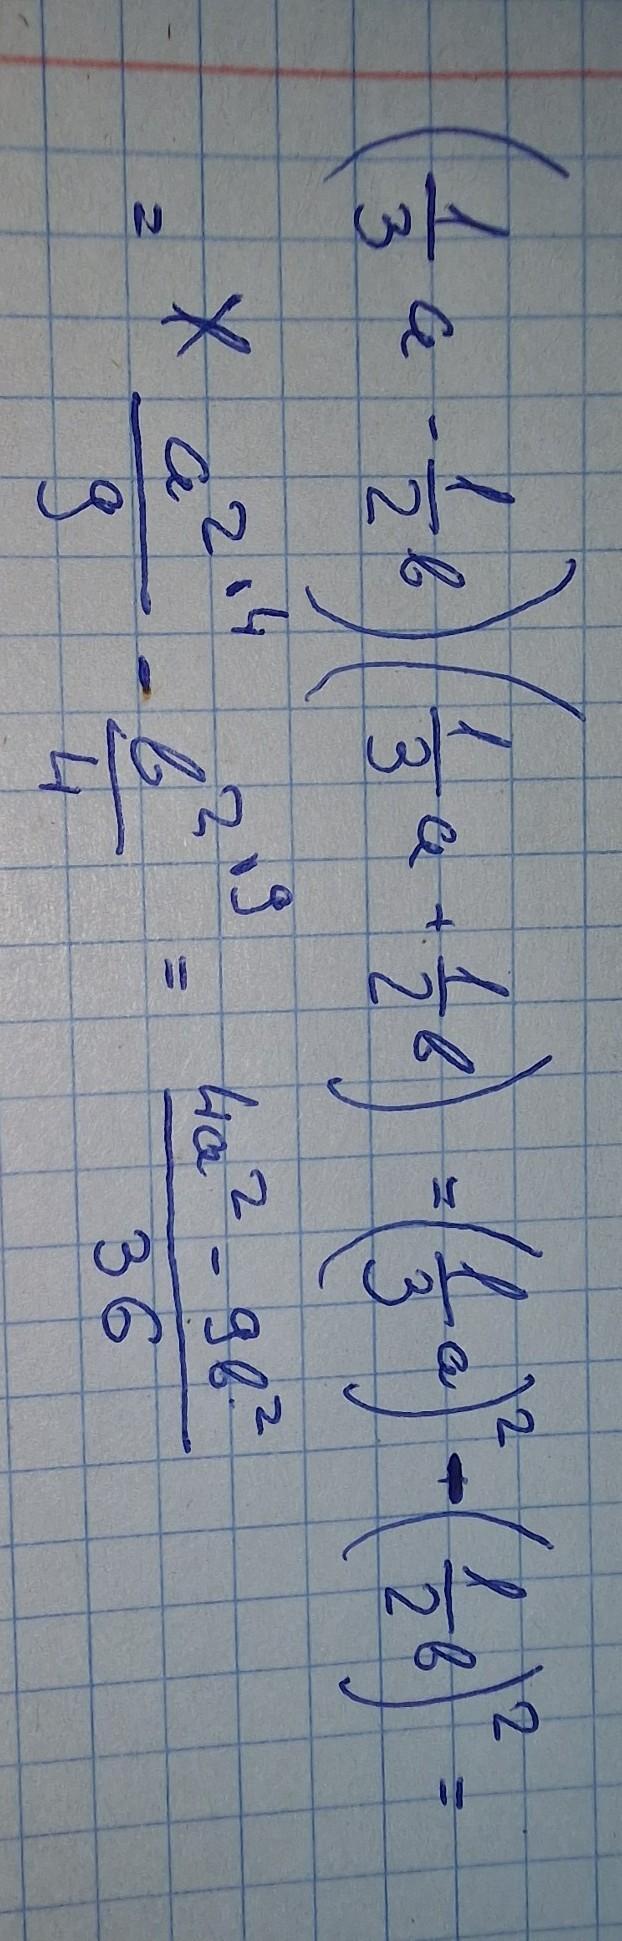 (1/3 a - 1/2 b)(1/3 a + 1/2 b) = (1/3 a)² - (1/2 b)² =
= a²·4/9 - b²·9/4 = 4a² - 9b²/36